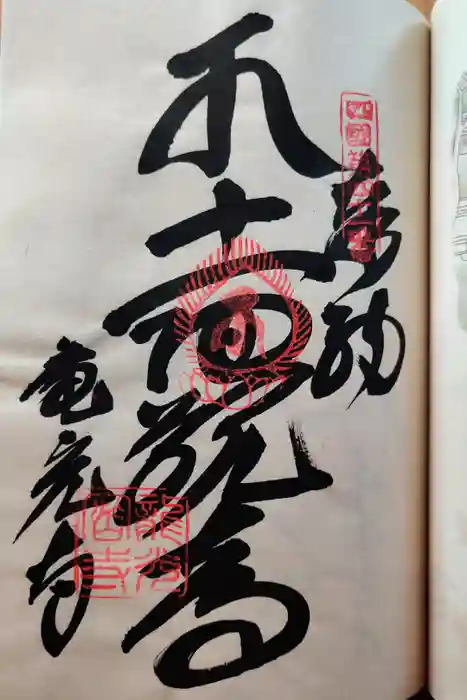 四國第四十一番
奉納
十一面観音
竜光寺